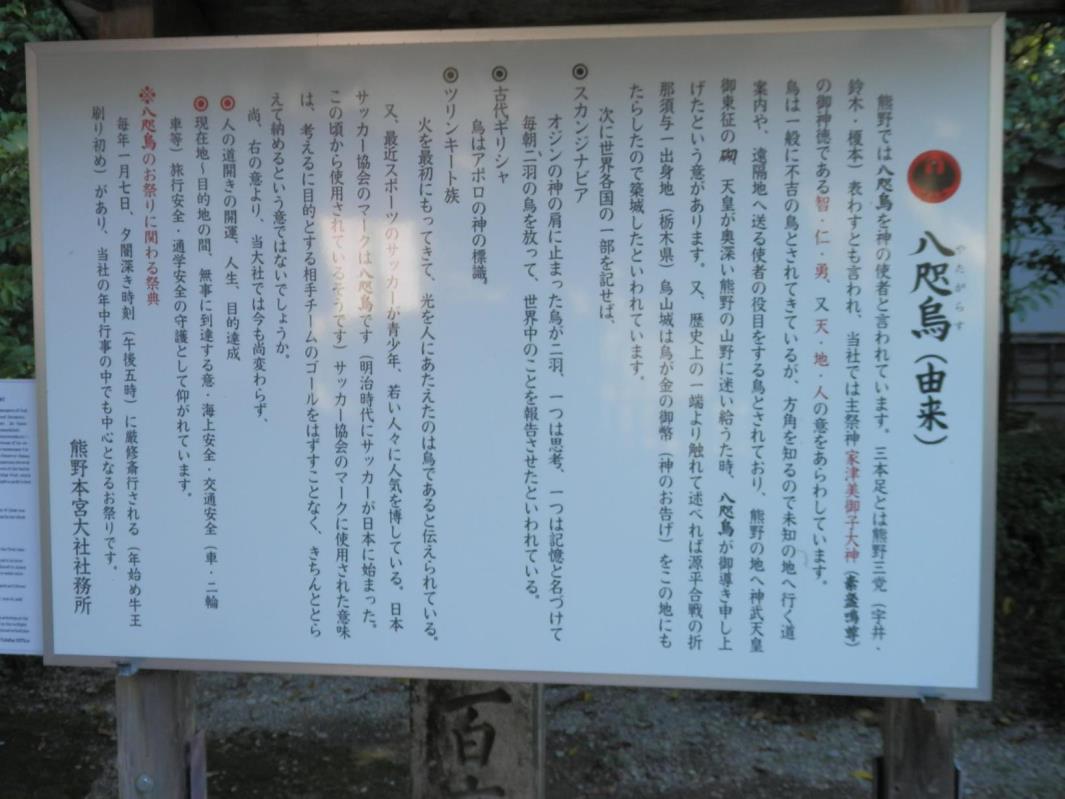 八咫烏（由来）
やたがらす
熊野では八咫烏を神の使者と言われています。三本足とは熊野三党（宇井・
鈴木・榎本）表わすとも言われ、当社では主祭神家津美御子大神（素盞鳴尊）
の御神徳である智・仁・勇、又天・地・人の意をあらわしています。
烏は一般に不吉の鳥とされてきているが、方角を知るので未知の地へ行く道
案内や、遠隔地へ送る使者の役目をする鳥とされており、熊野の地へ神武天皇
御東征の砌、天皇が奥深い熊野の山野に迷い給うた時、八咫烏が御導き申し上
げたという意があります。又、歴史上の一端より触れて述べれば源平合戦の折
那須与一出身地（栃木県）烏山城は烏が金の御幣（神のお告げ）をこの地にも
たらしたので築城したといわれています。
次に世界各国の一部を記せば、
◉スカンジナビア
オジンの神の肩に止まった烏が二羽、一つは思考、一つは記憶と名づけて
毎朝、二羽の烏を放って、世界中のことを報告させたといわれている。
◉古代ギリシャ
烏はアポロの神の標識。
◉ツリンキート族
火を最初にもってきて、光を人にあたえたのは烏であると伝えられている。
又、最近スポーツのサッカーが青少年、若い人々に人気を博している。日本
サッカー協会のマークは八咫烏です（明治時代にサッカーが日本に始まった。
この頃から使用されているそうです）サッカー協会のマークに使用された意味
は、考えるに目的とする相手チームのゴールをはずすことなく、きちんととら
えて納めるという意ではないでしょうか。
尚、右の意より、当大社では今も尚変わらず、
◉人の道開きの開運、人生、目的達成、
◉現在地～目的地の間、無事に到達する意・海上安全・交通安全（車・二輪
車等）旅行安全・通学安全の守護として仰がれています。
※八咫烏のお祭りに関わる祭典
毎年一月七日、夕闇深き時刻（午後五時）に厳修斎行される（年始め牛王
刷り初め）があり、当社の年中行事の中でも中心となるお祭りです。
熊野本宮大社社務所
百